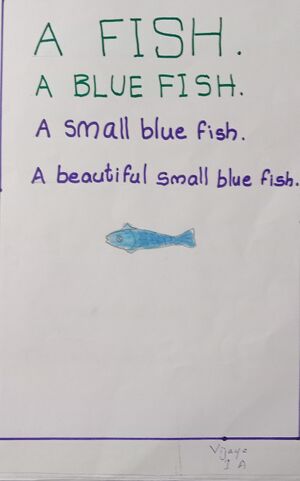 A FISH.
A BLUE FISH.
A small blue fish.
A beautiful small blue fish.
I A